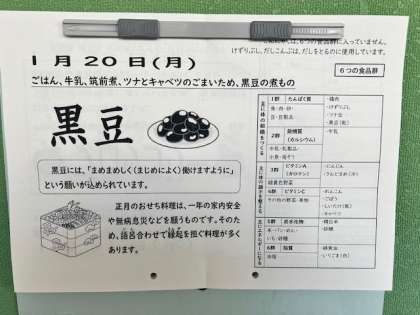 けずりぶし、だしこんぶは、だしをとるのに使用しています。
1月20日(月)
6つの食品群
ごはん、牛乳、筑前煮、ツナとキャベツのごまいため、黒豆の煮もの
黒豆
黒豆には、「まめまめしく(まじめによく)働けますように」
という願いが込められています。
正月のおせち料理は、一年の家内安全
や無病息災などを願うものです。そのた
め、語呂合わせで縁起を担ぐ料理が多く
あります。
1群 たんぱく質
魚・肉・卵・
豆・豆製品
・鶏肉
・けずりぶし
・ツナ缶
2群 無機質
(カルシウム)
牛乳・乳製品・
小魚・海そう
・牛乳
3群 ビタミンA
(カロテン)
緑黄色野菜
・にんじん
4群 ビタミンC
その他の野菜・果物
・れんこん
・ごぼう
・キャベツ
5群 炭水化物
米・パン・めん・
いも・砂糖
・砂糖
6群 脂質
油脂